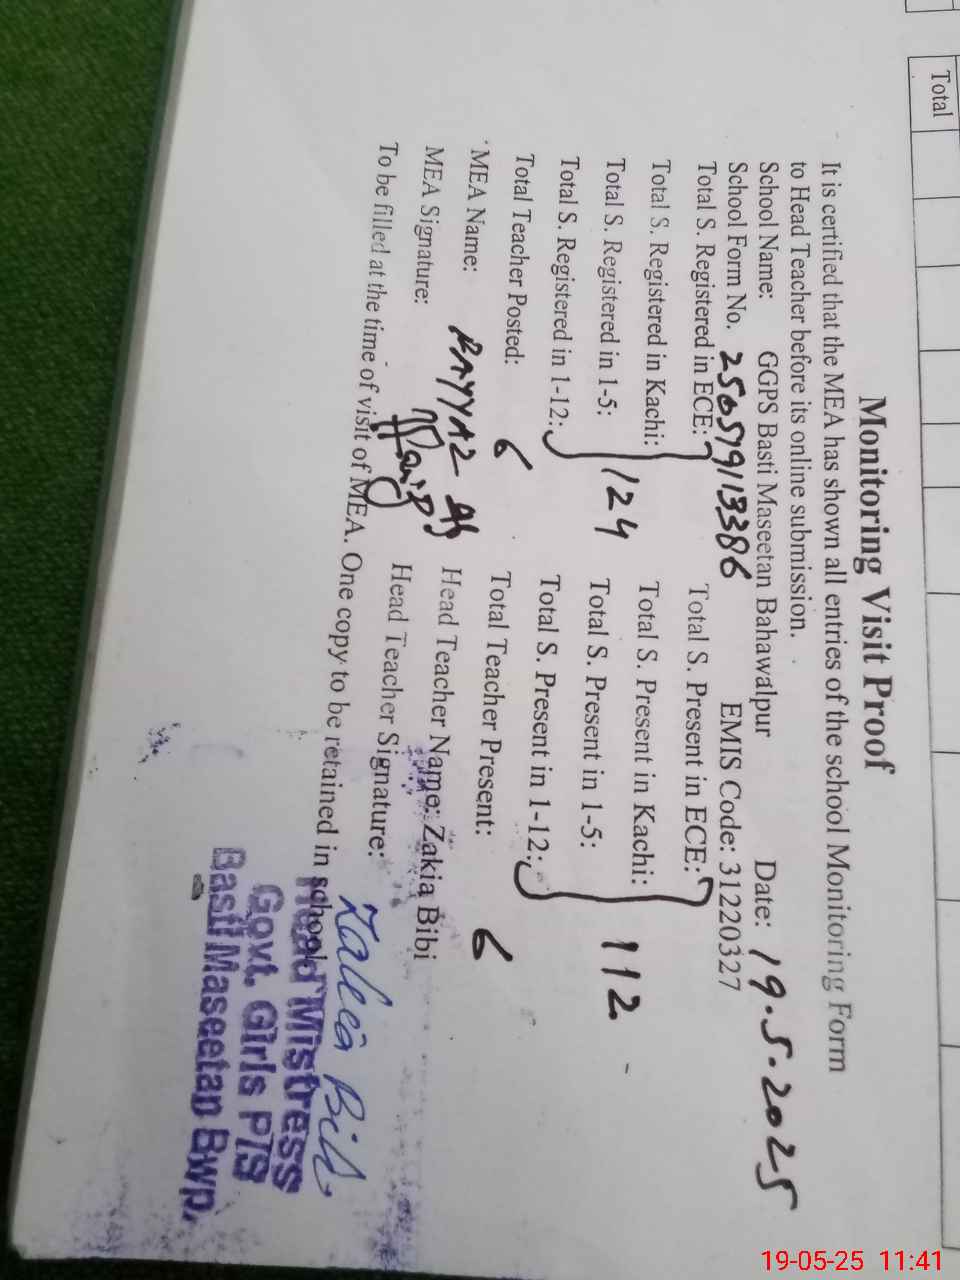 Total
Monitoring Visit Proof
It is certified that the MEA has shown all entries of the school Monitoring Form
to Head Teacher before its online submission.
School Name: GGPS Basti Maseetan Bahawalpur Date: 19.5.2025
School Form No. 250579113386 EMIS Code: 31220327
Total S. Registered in ECE: Total S. Present in ECE:
Total S. Registered in Kachi: Total S. Present in Kachi:
Total S. Registered in 1-5: 124 Total S. Present in 1-5: 112
Total S. Registered in 1-12: Total S. Present in 1-12:
Total Teacher Posted: 6 Total Teacher Present: 6
MEA Name: Head Teacher Name: Zakia Bibi
MEA Signature: Head Teacher Signature: Zakia Bibi
To be filled at the time of visit of MEA. One copy to be retained in school.
Head Mistress
Govt. Girls P/S
Basti Maseetan Bwp.
19-05-25 11:41